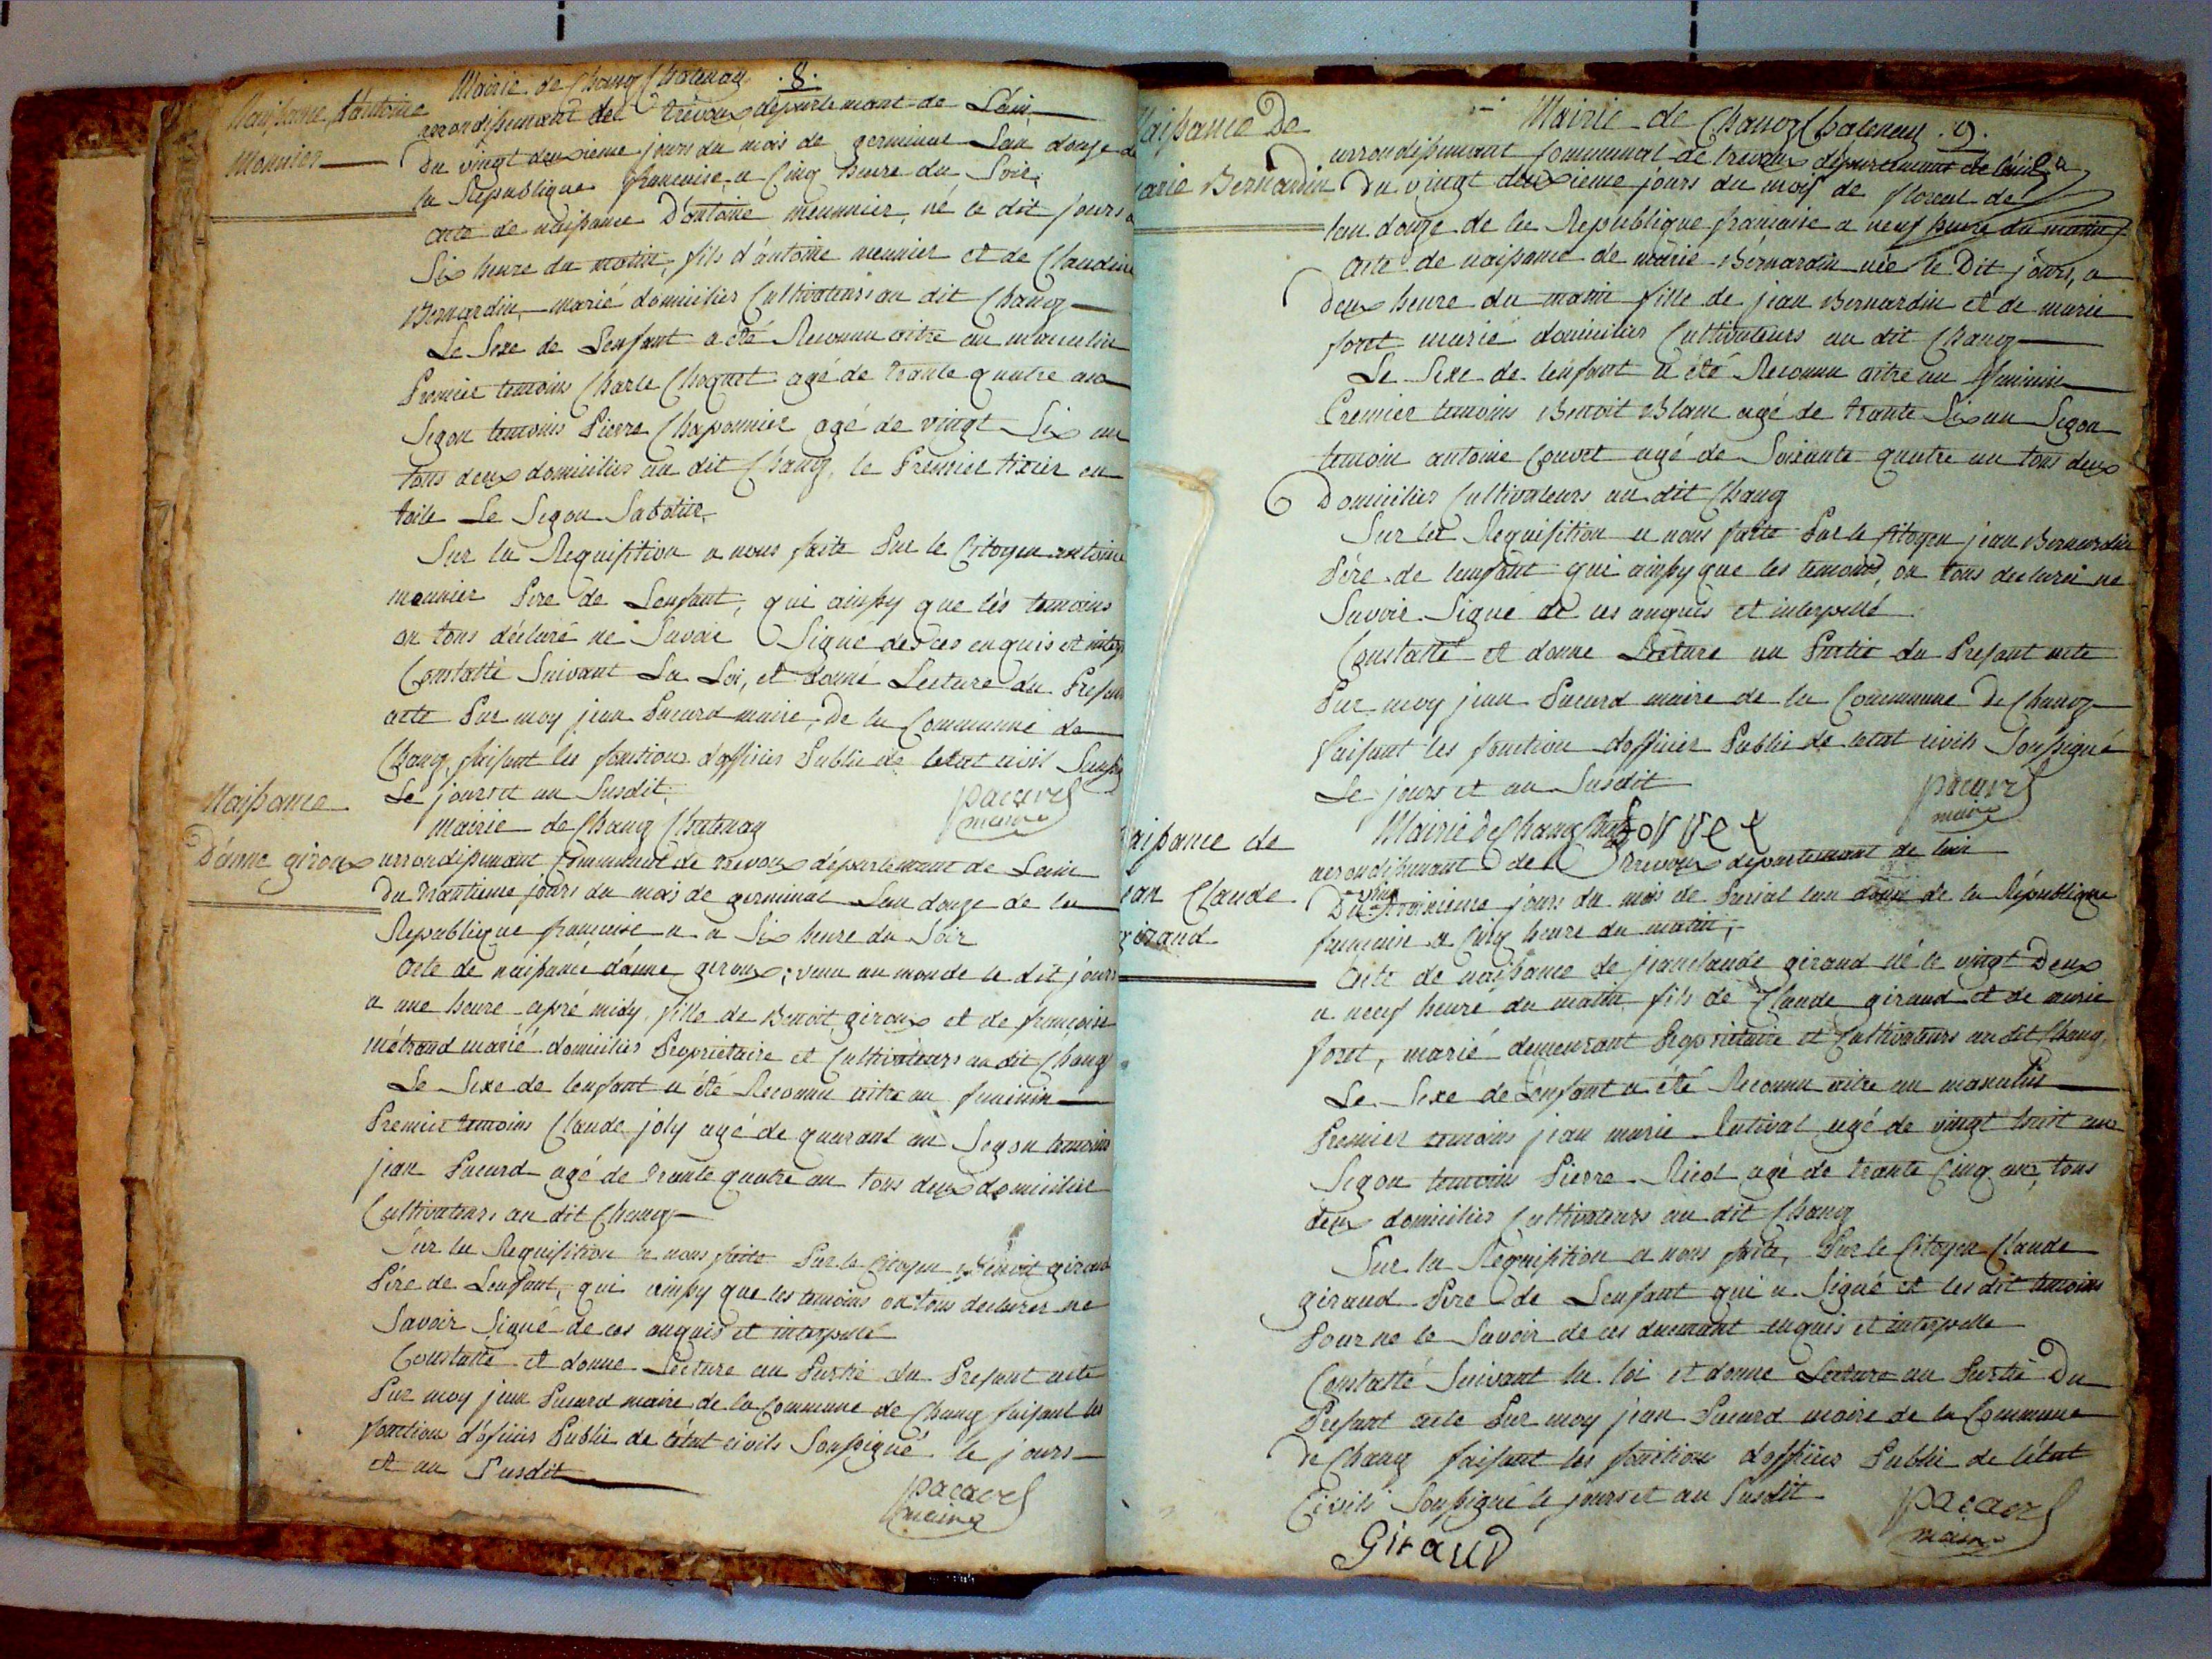 Mairie de Chanoz Chatenay .8.
Naissance d'antoine
Monnier
arrondissemant de trevoux departemant de Lain
Du vingt deuxieme jours du mois de germinal Lan douze de
la Republique francoise, a Cinq heure du Soir,
acte de naissance D'antoine meunnier, né le dit jours a
Six heure du matin, fils d'antoine meunier et de Claudine
Bernardin, marié domicilies Cultivateurs au dit Chanoz
Le Sexe de Lenfant a été Reconnu aitre au masculin
Premier temoins Charle Choquet agé de trante quatre ans
Segon temoins Pierre Chaponnier agé de vingt Six an
tous deux domicilies au dit Chanoz, le Premier tixier en
toile Le Segon Sabotier,
Sur la Requisition a nous faite Par le Citoyen antoine
meunier Pere de Lenfant, qui ainsy que lés temoins
on tous déclaré ne Savoir Signé de ces enquis et inter
Constatté Suivant La Loi, et donné Lecture du Presan
acte Par moy jean Pacard maire, De la Commune de
Chanoz, faisant les fonctions d'officier Public de letat civil Soussig
Le jours et an Susdit,
pacard
maire
Naissance
D'anne giroux
mairie de Chanoz Chatenay
arrondissemant Communal de trevoux départemant de Lain
Du trantieme jours du mois de germinal Lan douze de la
Republique francoise a a Six heure du Soir
acte de naissance d'anne giroux, venu au monde le dit jours
a une heure apré midy, fille de Benoit giroux et de francoise
métraud marié domicilies Propriétaire et Cultivateurs au dit Chanoz
Le Sexe de lenfant a été Reconnu aitre au feminin
Premier temoins Claude joly agé de quarant an Segon temoins
jean Pacard agé de trante quatre an tous deux domicilier
Cultivateurs au dit Chanoz
Sur la Requisition a nous faite Par le Citoyen Benoit giroux
Pére de Lenfant, qui ainsy que les temoins on tous declarer ne
Savoir Signé de ces anquis et interpellé
Constatté et donne Lecture au Partie du Presant acte
Par moy jean Pacard maire de la Commune de Chanoz faisant les
fonctions d'oficier Public de l'état civils Soussigné le jours
et an Susdit
pacard
maire
Mairie de Chanoz Chatenay .9.
Naissance De
marie Bernardin
arrondissemant Communal de trevoux departemant de lain
Du vingt deuxieme jours du mois de floreal de
lan douze de la Republique francaise a neuf heure du matin
acte de naissance de marie Bernardin née le Dit jours, a
Deux heure du matin fille de jean Bernardin et de marie
foret marié domicilier Cultivateurs au dit Chanoz
Le Sexe de lenfant a été Reconnu aitre au feminin
Premier temoins Benoit Blanc agé de trante Six an Segon
temoin antoine Couvet agé de Soixante quatre an tous deux
Domicilier Cultivateurs au dit Chanoz
Sur la Requisition a nous faite Par le Citoyen jean Bernardin
Pére de lenfant qui ainsy que les temoins on tous declarer ne
Savoir Signé de ces anquis et interpellé
Constatté et donne Lecture au Partie du Presant acte
Par moy jean Pacard maire de la Commune De Chanoz
faisant les fonction d'officier Public de letat civils Soussigné
Le jours et an Susdit
pacard
maire
Naissance de
jean Claude
giraud
Mairie de Chanoz
arrondissemant de trevoux departemant de lain
Du vingt troisieme jours du mois de Prerial lan douze de la République
francaise a Cinq heure du matin,
acte de naissance de jean claude giraud né le vingt Deux
a neuf heure du matin fils de Claude giraud et de marie
foret, marié demeurant Propriétaire et Cultivateurs au dit Chanoz,
Le Sexe de Lenfant a été Reconnu aitre au masculin
Premier temoins jean marie agé de vingt huit ans
Segon temoins Pierre Ricol agé de trante Cinq an, tous
deux domicilies Cultivateurs au dit Chanoz
Sur la Requisition a nous faite, Par le Citoyen Claude
giraud Pere de Lenfant qui a Signé et les dit temoins
Pour ne le Savoir de ces duemant enquis et interpelle
Constatté Suivant la loi et donne Lecture au Partie Du
Presant acte Par moy jean Pacard maire de la Commune
de Chanoz faisant les fonction d'officier Public de l'état
Civils Soussigné le jours et an Susdit
pacard
maire
Giraud